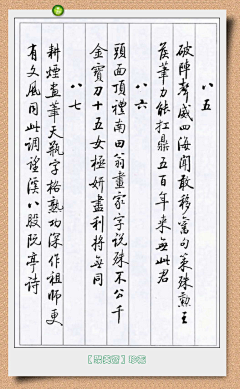 八五
破陣聲威四海聞敢移舊句策殊勳王
侯筆力能扛鼎五百年來無此君
八六
頭面頂禮南田翁畫家字說殊不公千
金寶刀十五女極妍盡利將無同
八七
耕煙畫筆天瓶字格熟功深作祖師更
有文風同此調望溪八股阮亭詩